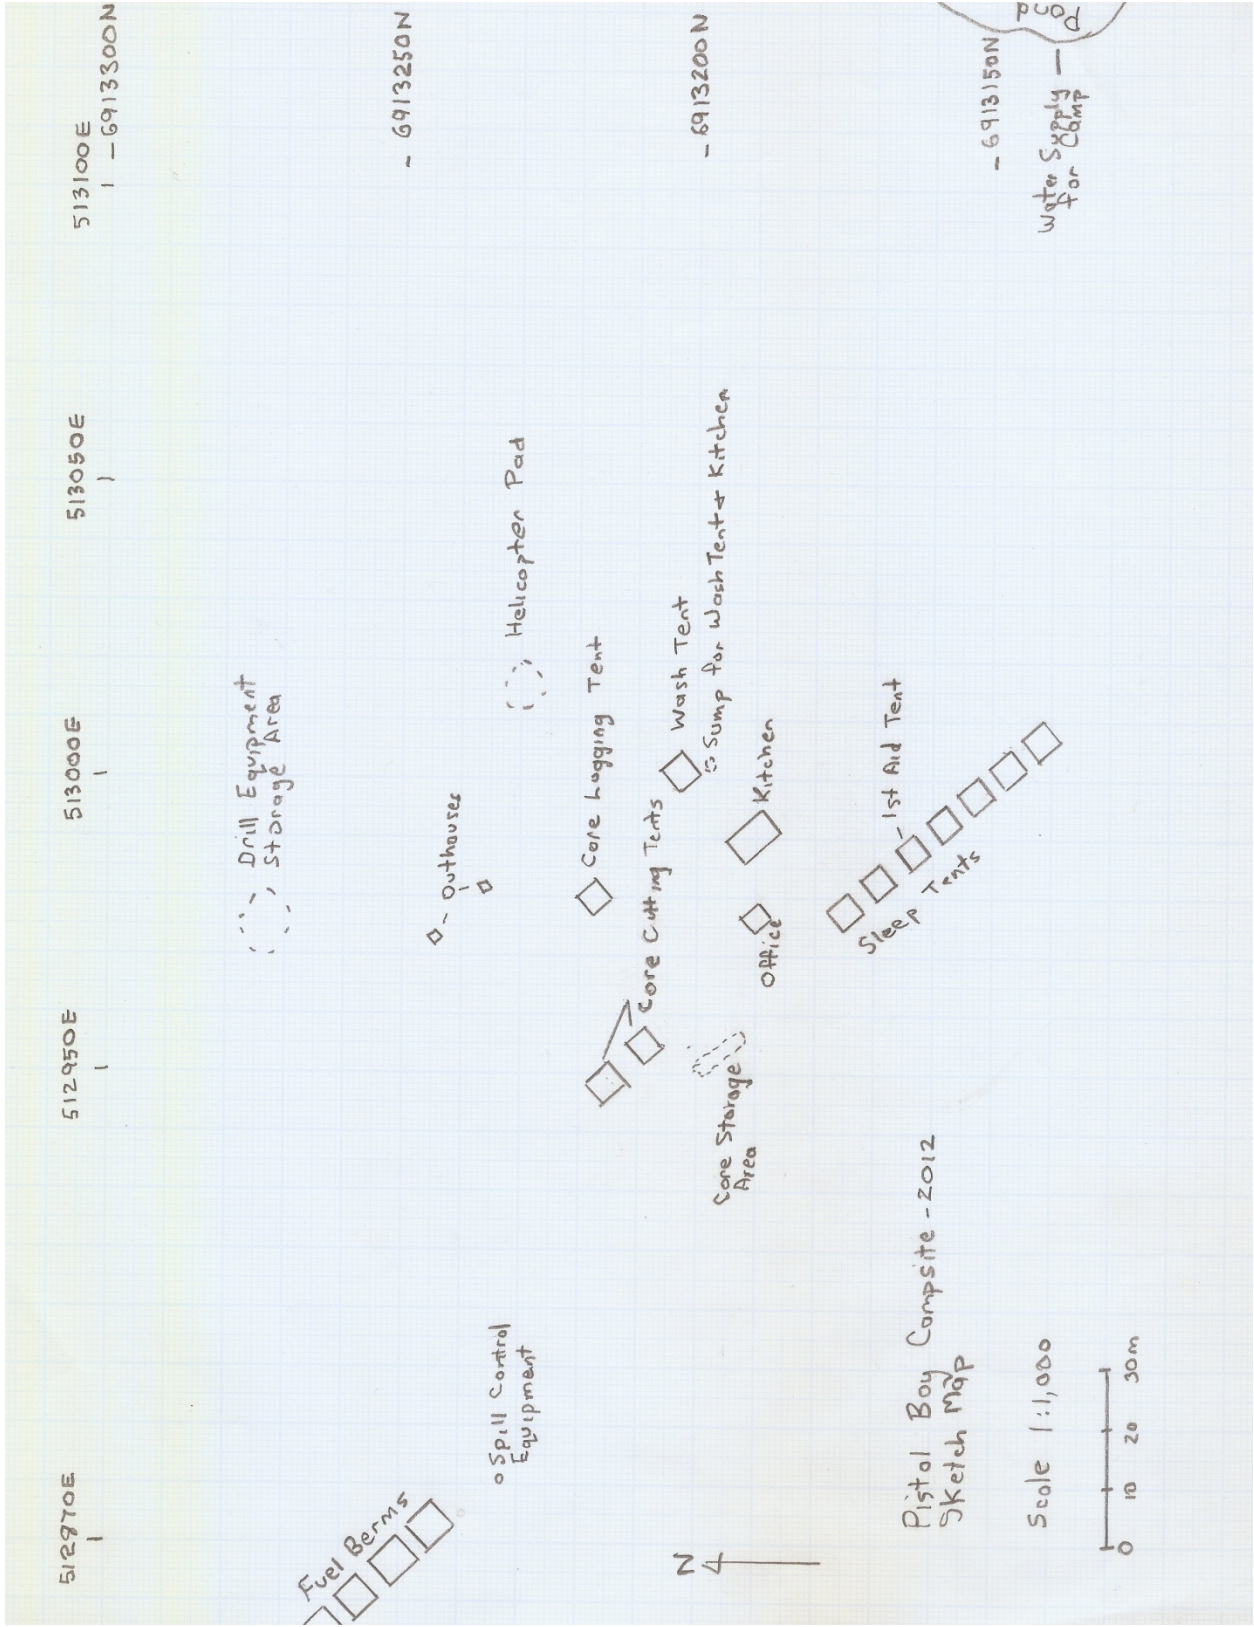 512870E
512950E
513000E
513050E
513100E
- 6913300N
- 6913250N
- 6913200N
- 6913150N
Pond
Water Supply —
for Camp
Drill Equipment
Storage Area
- Outhouses
Helicopter Pad
Core Logging Tent
Core Cutting Tents
Wash Tent
Sump for Wash Tent & Kitchen
Kitchen
Office
- 1st Aid Tent
Sleep Tents
Core Storage
Area
Spill Control
Equipment
Fuel Berms
N
Pistol Boy Campsite - 2012
Sketch Map
Scale 1:1,000
0 10 20 30m